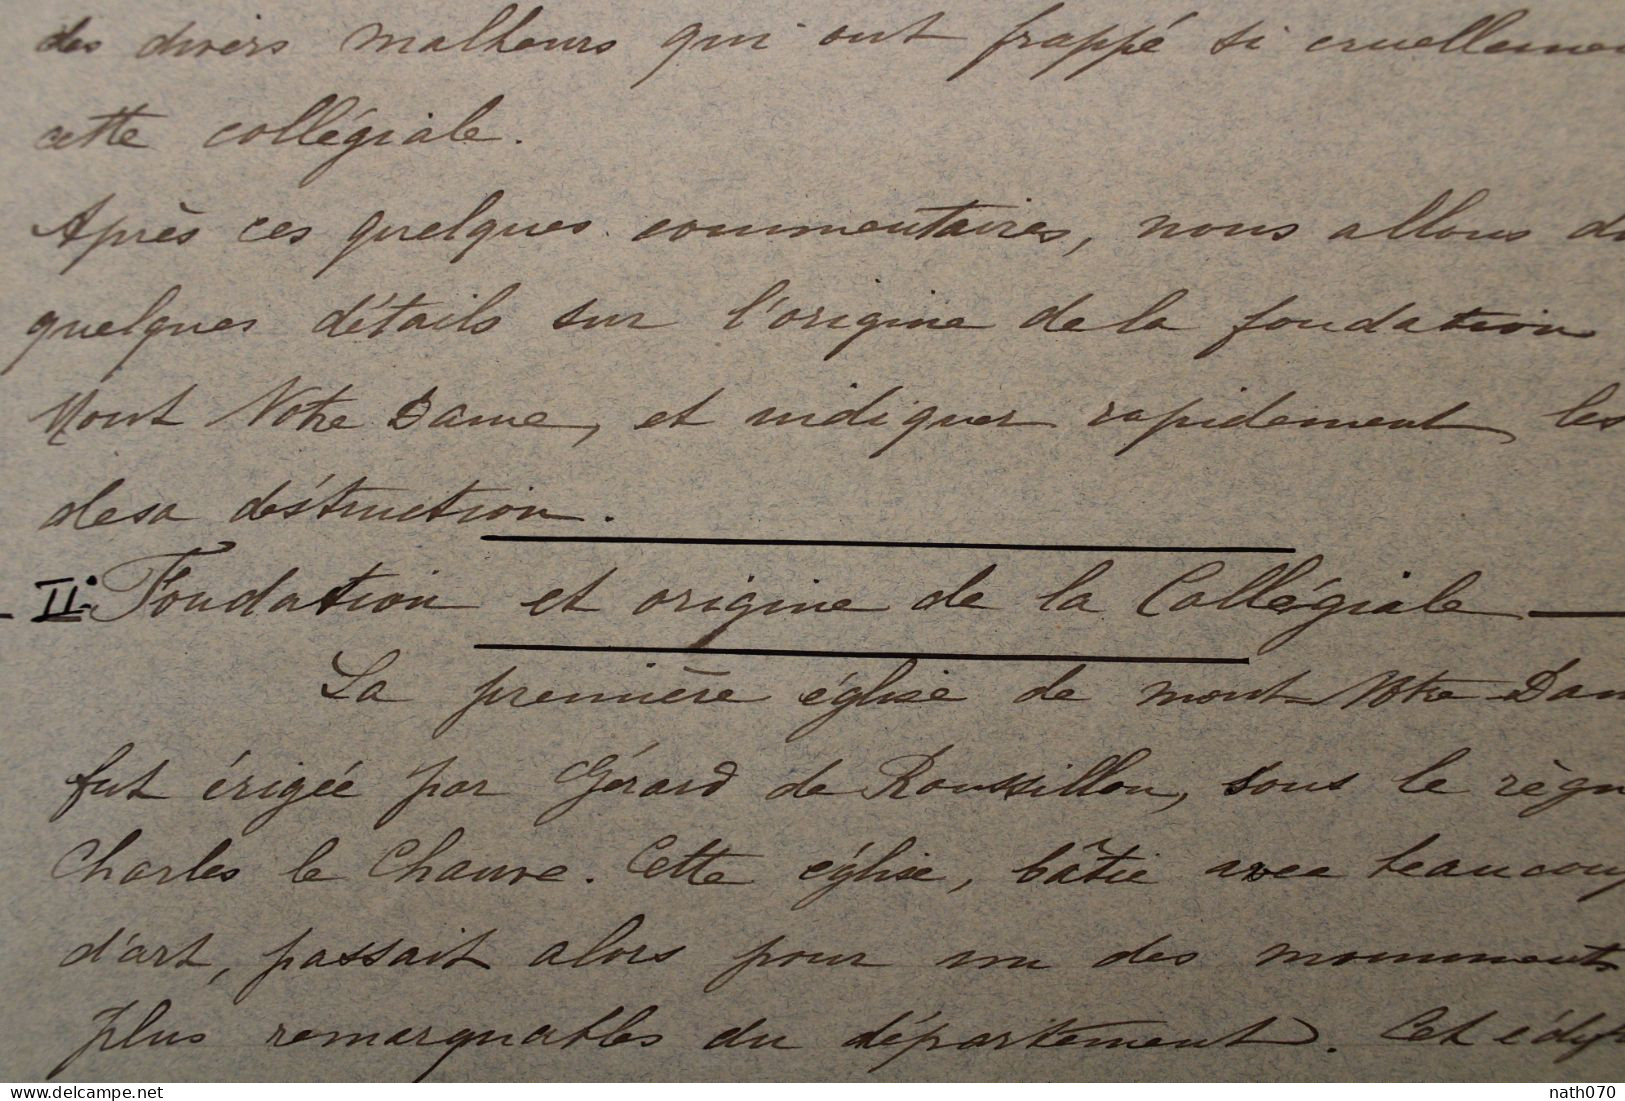 des divers malheurs qui ont frappé si cruellemen
cette collégiale.
Après ces quelques commentaires, nous allons d
quelques détails sur l'origine de la fondation
Mont Notre Dame, et indiquer rapidement les
de sa déstruction.
II. Fondation et origine de la Collégiale
La première église de mont Notre Dam
fut érigée par Gérard de Roussillon, sous le règn
Charles le Chauve. Cette église, bâtie avec beaucoup
d'art, passait alors pour un des monuments
plus remarquables du département. Cet édif
delcampe.net
nath070